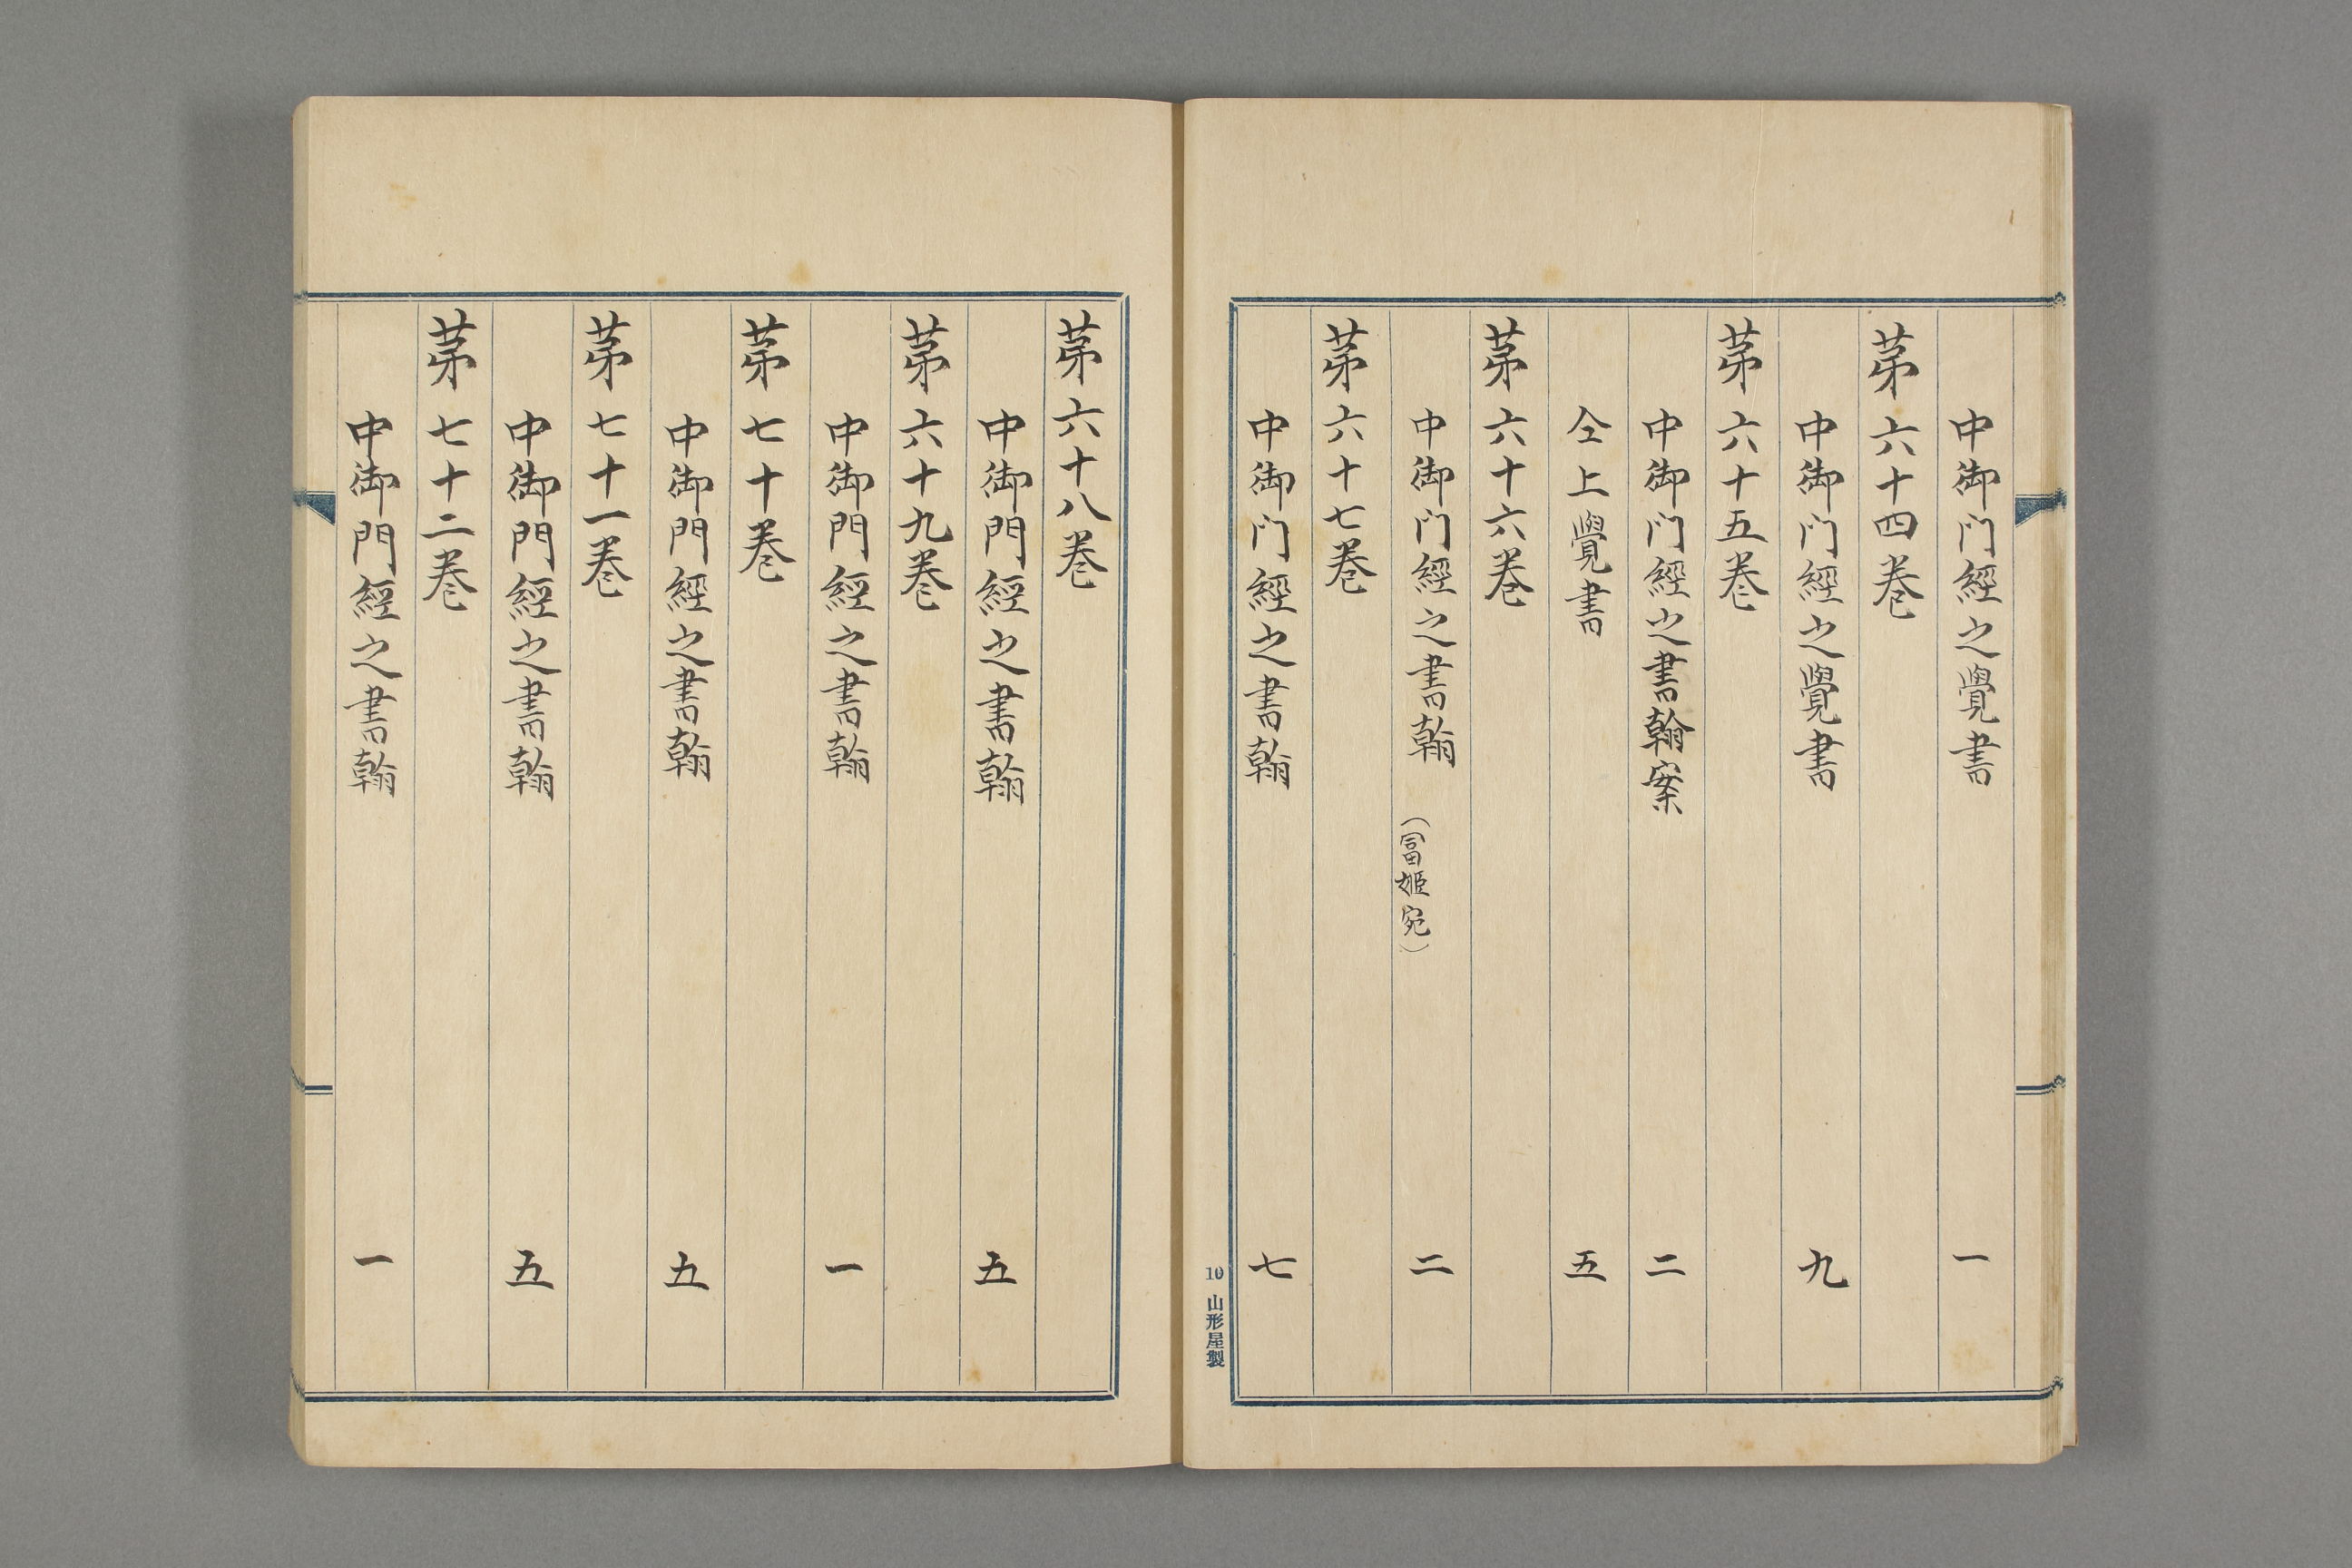 中御门經之覺書 一
苐六十四巻
中御门經之覺書 九
苐六十五巻
中御门經之書翰案 二
仝上覺書 五
苐六十六巻
中御门經之書翰 (冨姫宛) 二
苐六十七巻
中御门經之書翰 七
10 山形屋製
苐六十八巻
中御門經之書翰 五
苐六十九巻
中御門經之書翰 一
苐七十巻
中御門經之書翰 五
苐七十一巻
中御門經之書翰 五
苐七十二巻
中御門經之書翰 一